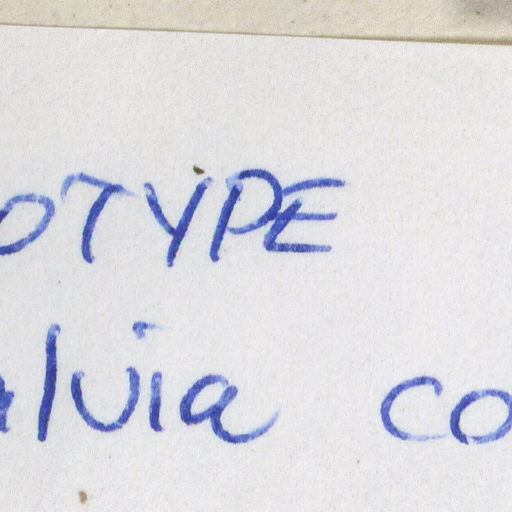 OTYPE
alvia co